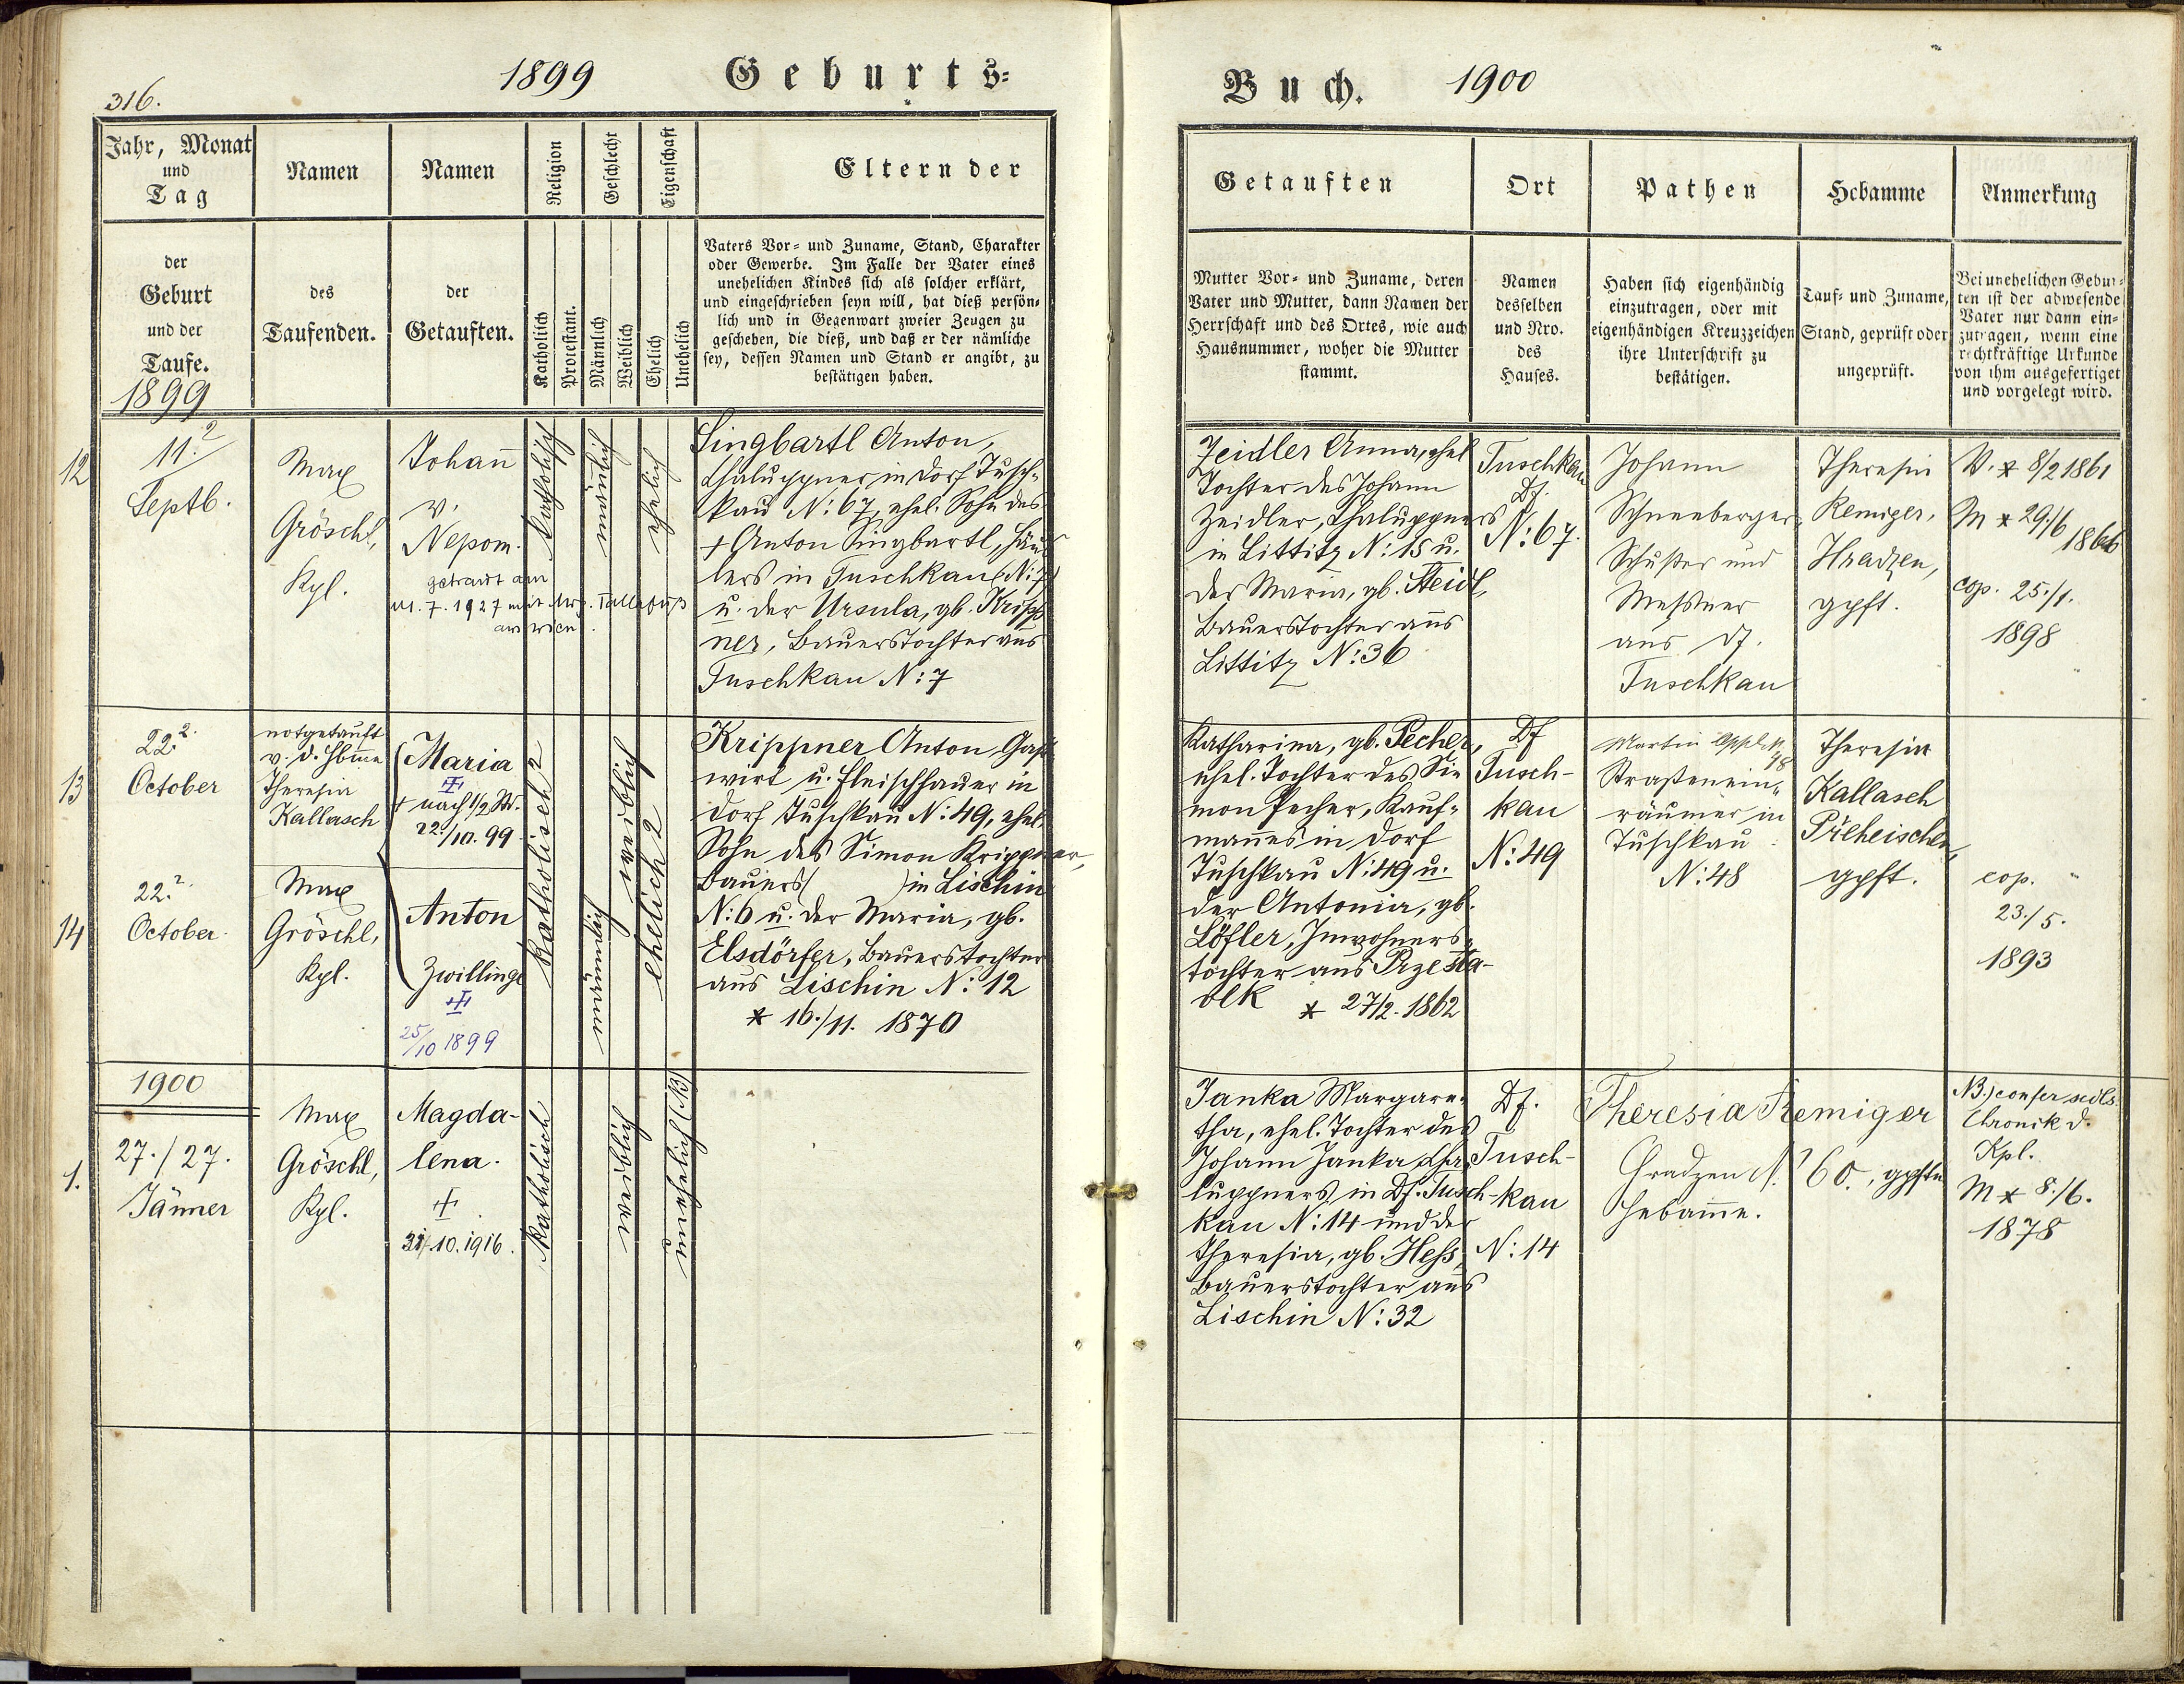 316.
1899 Geburts-
Jahr, Monat
und
Tag
Namen
Namen
Religion
Geschlecht
Eigenschaft
Eltern der
der
Geburt
und der
Taufe.
1899
des
Taufenden.
der
Getauften.
Katholisch
Protestant.
Männlich
Weiblich
Ehelich
Unehelich
Vaters Vor- und Zuname, Stand, Charakter
oder Gewerbe. Im Falle der Vater eines
unehelichen Kindes sich als solcher erklärt,
und eingeschrieben seyn will, hat dieß persön-
lich und in Gegenwart zweier Zeugen zu
geschehen, die dieß, und daß er der nämliche
sey, dessen Namen und Stand er angibt, zu
bestätigen haben.
12
11.2
Septb.
Max
Gröschl,
Kpl.
Johan̄
v.
Nepom.
getraut am
7.1927 mit
aus Wien.
katholisch
männlich
ehelich
Singbartl Anton,
Chaluppner in Dorf Tusch-
kau N: 67, ehel. Sohn des
+ Anton Singbartl, Häus
lers in Tuschkau (N: 7)
u. der Ursula, gb. Kripp
ner, Bauerstochter aus
Tuschkau N: 7
13
22.2.
October
notgetauft
v. d. Hbme
Theresia
Kallasch
Maria
+ nach 1/2 St.
22./10. 99.
14
22.2.
October.
Max
Gröschl,
Kpl.
Anton
Zwillinge
25/10 1899
katholisch 2
männlich
weiblich
ehelich 2
Krippner Anton, Gast
wirt u. Fleischhauer in
Dorf Tuschkau N: 49, ehel.
Sohn des Simon Krippner,
Bauers ( ) in Lischin
N: 6 u. der Maria, gb.
Elsdörfer, Bauerstochter
aus Lischin N: 12
* 16./11. 1870
1900
1.
27./27.
Jänner
Max
Gröschl,
Kpl.
Magda-
lena.
31/10.1916.
katholisch
weiblich
unehelich (NB)
Buch. 1900
Getauften
Ort
Pathen
Hebamme
Anmerkung
Mutter Vor- und Zuname, deren
Vater und Mutter, dann Namen der
Herrschaft und des Ortes, wie auch
Hausnummer, woher die Mutter
stammt.
Namen
desselben
und Nro.
des
Hauses.
Haben sich eigenhändig
einzutragen, oder mit
eigenhändigen Kreuzzeichen
ihre Unterschrift zu
bestätigen.
Tauf- und Zuname,
Stand, geprüft oder
ungeprüft.
Bei unehelichen Gebur-
ten ist der abwesende
Vater nur dann ein-
zutragen, wenn eine
rechtkräftige Urkunde
von ihm ausgefertiget
und vorgelegt wird.
Zeidler Anna, ehel
Tochter des Johann
Zeidler, Chaluppners
in Littitz N: 15 u.
der Maria, gb. Steidl,
Bauerstochter aus
Littitz N: 36
Tuschkau
Df.
N: 67.
Johann
Schneeberger,
Schuster und
Messner
aus Df.
Tuschkau
Theresia
Remiger,
Hradzen,
gpft.
V. * 8/2 1861
M * 29./6
1866
cop. 25./1.
1898
Katharina, gb. Pecher,
ehel. Tochter des Si-
mon Pecher, Kauf-
mannes in Dorf
Tuschkau N: 49 u.
der Antonia, gb.
Löfler, Inwohners-
tochter aus Przesta-
vlk * 27/2. 1862
Df
Tusch-
kau
N: 49
Martin
Straßenein-
räumer in
Tuschkau
N: 48
Theresia
Kallasch
Přeheischen,
gpft.
cop.
23./5.
1893
Janka Margare-
tha, ehel. Tochter des
Johann Janka, Cha-
luppners in Df. Tusch-
kau N: 14 und der
Theresia, gb. Hess,
Bauerstochter aus
Lischin N: 32
Df.
Tusch-
kau
N: 14
Theresia Remiger
Hradzen N: 60., gpfte
Hebamme.
NB.) confer
Chronik d.
Kpl.
M * 8./6.
1878